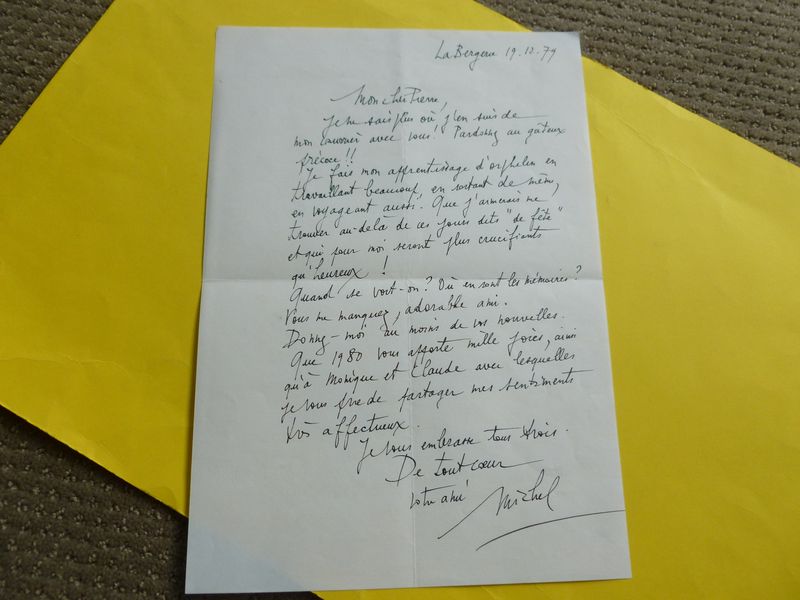 La Bergerie 19.12.79
Mon cher Pierre,
Je ne sais plus où j'en suis de
mon courrier avec vous! Pardonnez au gâteux
précoce!!
Je fais mon apprentissage d'orphelin en
travaillant beaucoup, en restant de même,
en voyageant aussi. Que j'aimerais me
trouver au-delà de ces jours dits "de fête"
et qui pour moi seront plus crucifiants
qu'heureux!
Quand se voit-on? Où en sont les mémoires?
Vous me manquez, adorable ami.
Donnez-moi au moins de vos nouvelles.
Que 1980 vous apporte mille joies, ainsi
qu'à Monique et Claude avec lesquelles
je vous prie de partager mes sentiments
très affectueux.
Je vous embrasse tous trois.
De tout cœur
votre ami
Michel